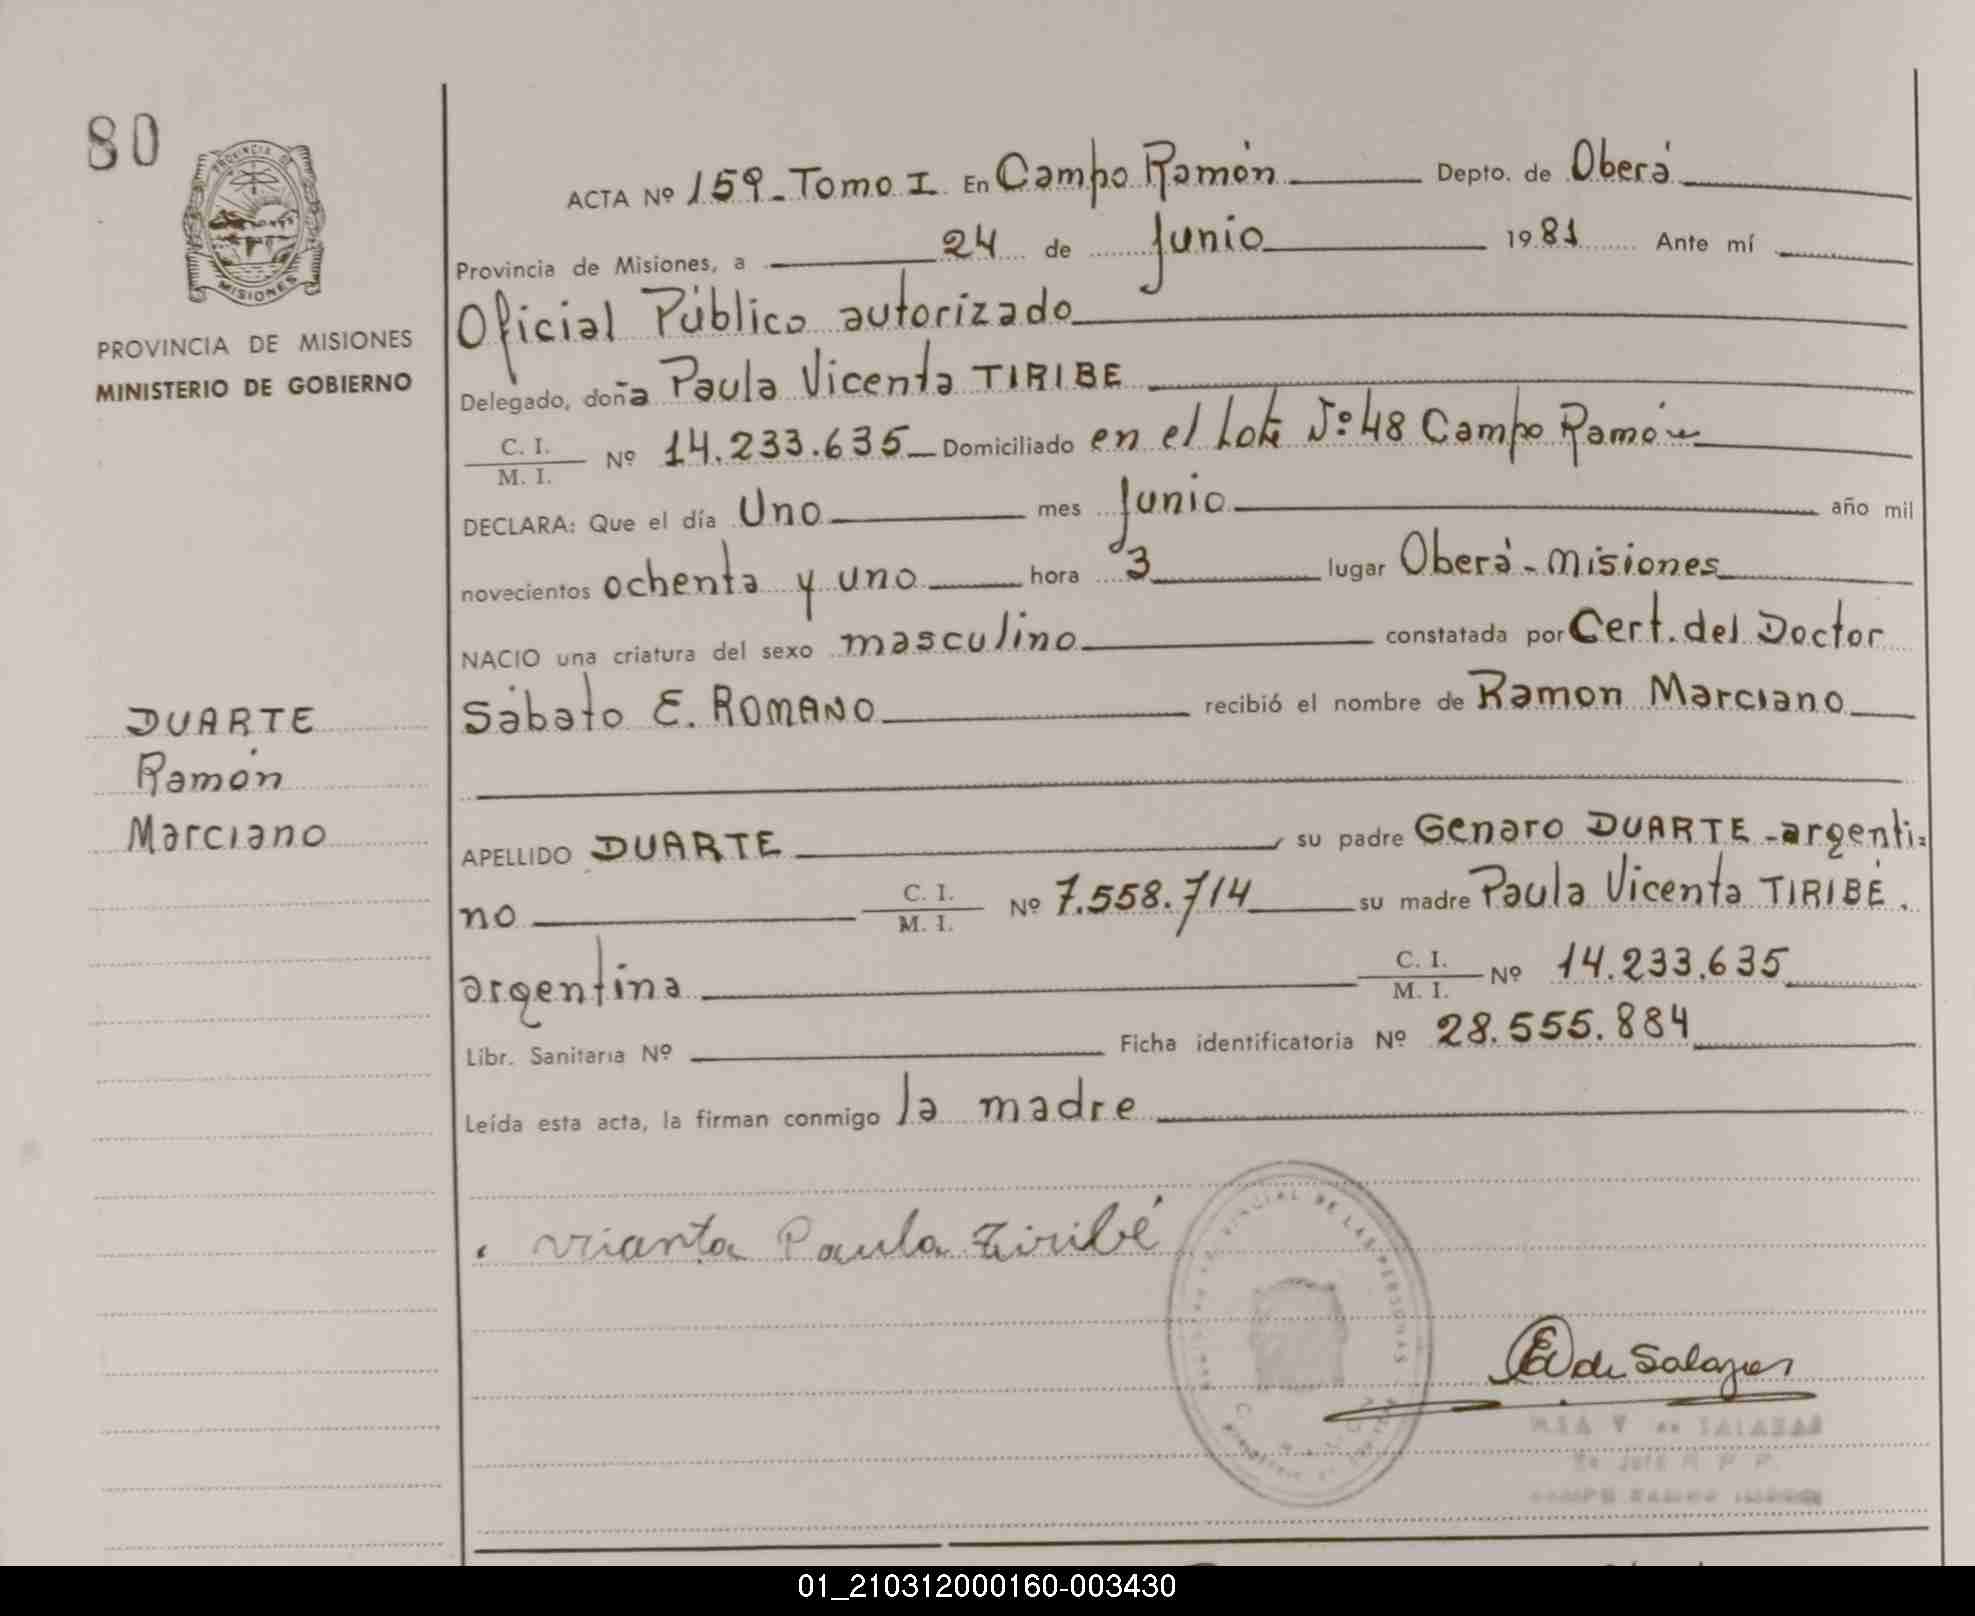 80
PROVINCIA DE
MISIONES
PROVINCIA DE MISIONES
MINISTERIO DE GOBIERNO
DUARTE
Ramón
Marciano
ACTA Nº 159_Tomo I En Campo Ramón Depto. de Oberá
Provincia de Misiones, a 24 de Junio 1981 Ante mí
Oficial Público autorizado
Delegado, doña Paula Vicenta TIRIBE
C. I.
M. I. Nº 14.233.635 Domiciliado en el Lote Nº 48 Campo Ramón
DECLARA: Que el día Uno mes Junio año mil
novecientos ochenta y uno hora 3 lugar Oberá - Misiones
NACIO una criatura del sexo masculino constatada por Cert. del Doctor
Sábato E. ROMANO recibió el nombre de Ramon Marciano
APELLIDO DUARTE su padre Genaro DUARTE - argenti=
no C. I.
M. I. Nº 7.558.714 su madre Paula Vicenta TIRIBÉ.
argentina C. I.
M. I. Nº 14.233.635
Libr. Sanitaria Nº Ficha identificatoria Nº 28.555.884
Leída esta acta, la firman conmigo la madre
Paula Tiribé
DE LAS PERSONAS
de Salazar
V de SALAZAR
01_210312000160-003430